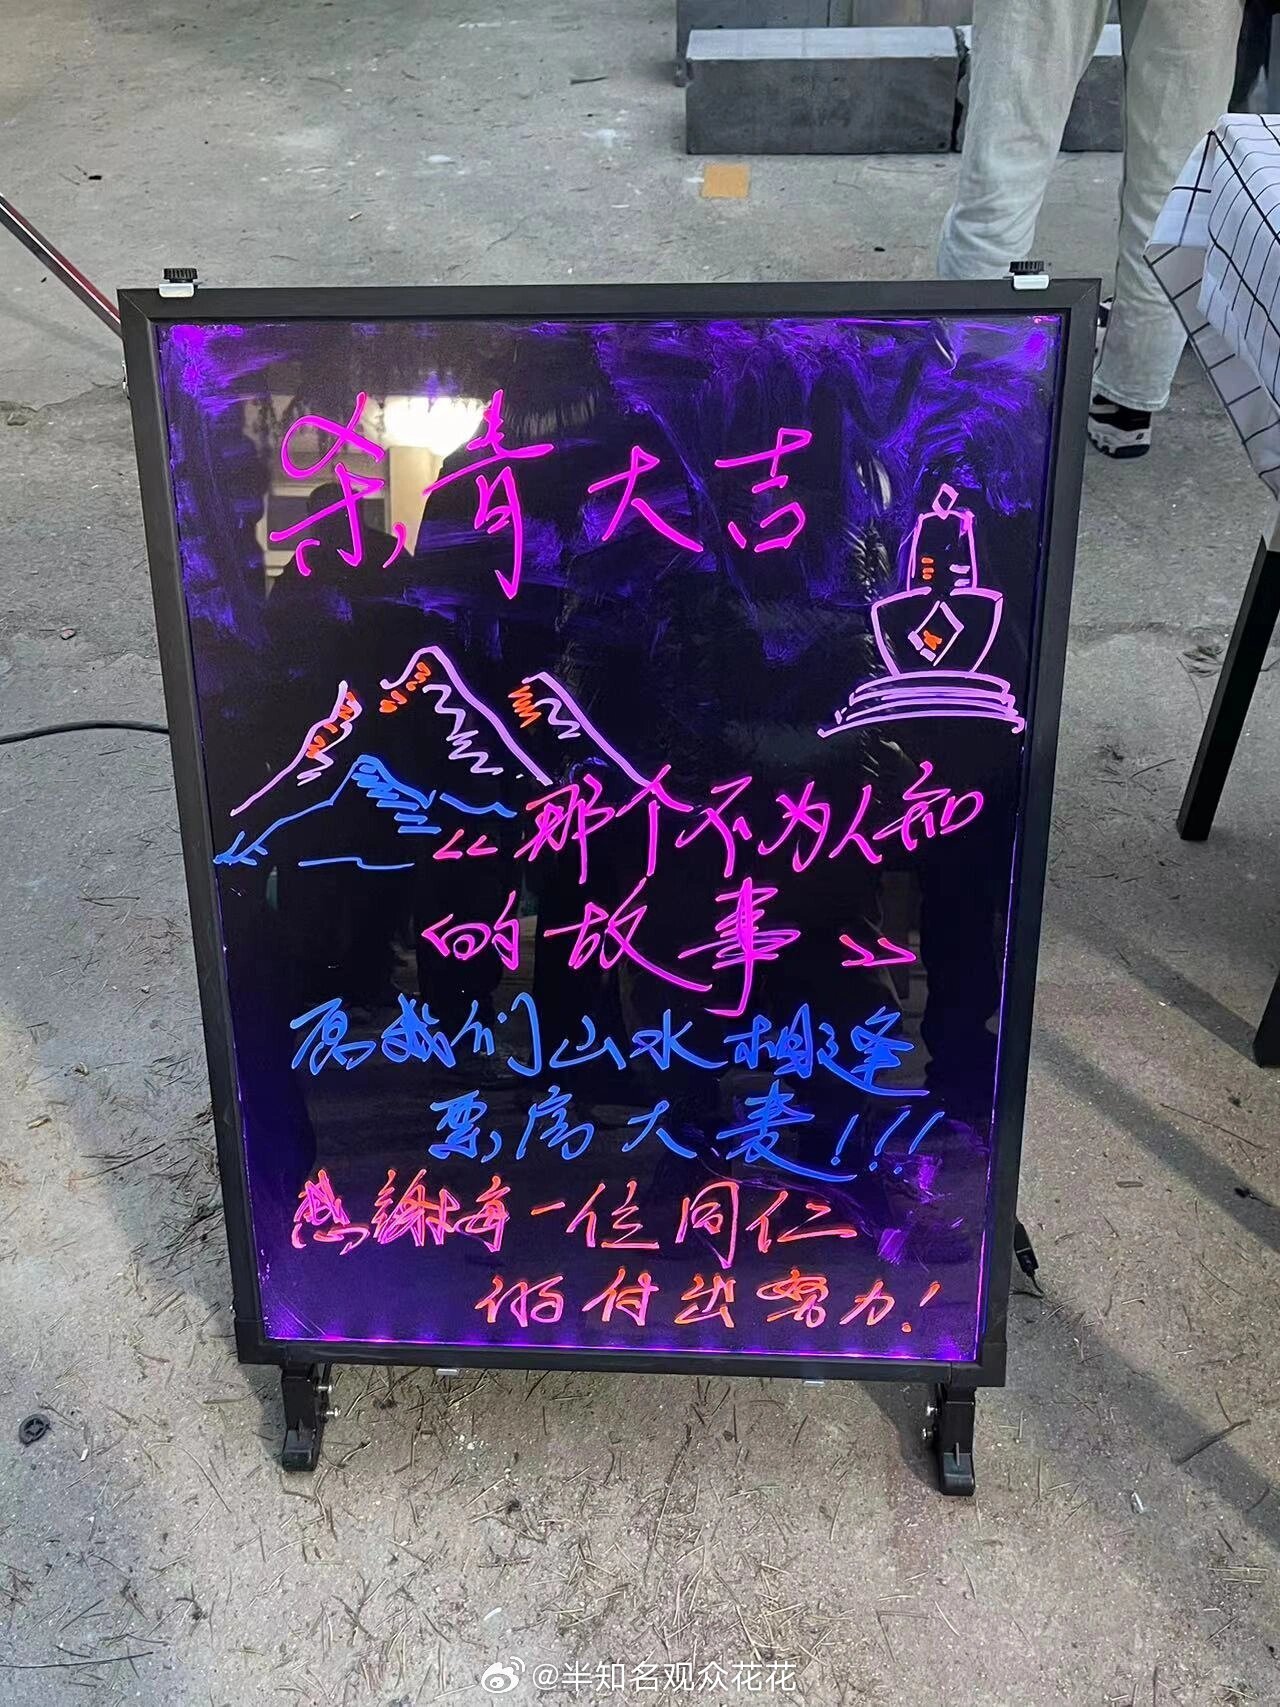 杀青大吉
《那个不为人知
的故事》
愿我们山水相逢
票房大麦!!!
感謝每一位同仁
的付出努力!
@半知名观众花花